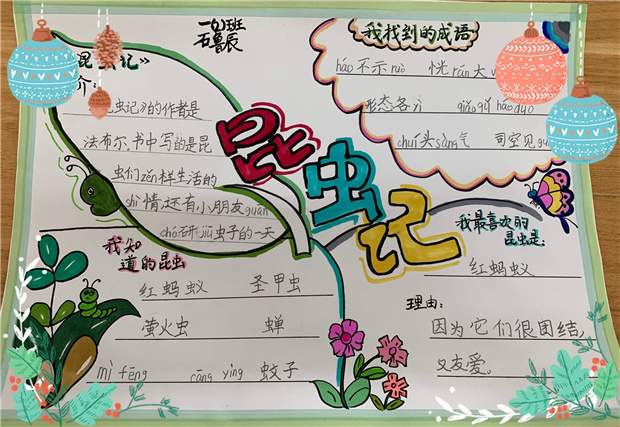 一(1)班
石鲁辰
昆虫记》
介:
虫记》的作者是
法布尔,书中写的是昆
虫们zěn样生活的
shì情,还有,小朋友guān
chá研jiū虫子的一天
昆虫记
我找到的成语
háo不示ruò 恍rán大
形态各yì
chuí头sàng气 司空见
我知
道的昆虫
红蚂蚁 圣甲虫
萤火虫 蝉
mì fēng cāng yíng 蚊子
我最喜欢的
昆虫是:
红蚂蚁
理由:
因为它们很团结,
又友爱。